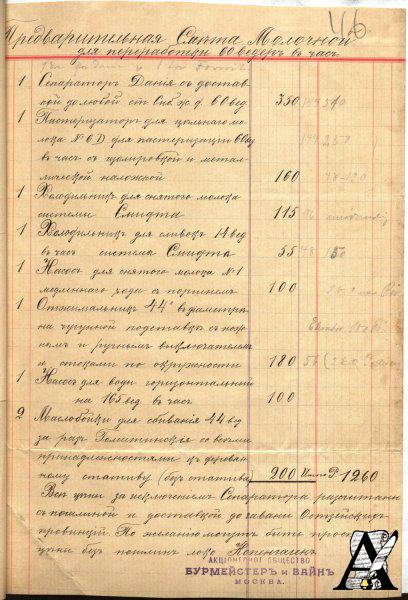 116
Предварительная Смѣта Молочной
для переработки 60 ведеръ въ часъ
1 Сепараторъ Данія съ достав-
кой до любой ст. жд. 60 вед 350
1 Пастеризаторъ для цѣльнаго мо-
лока № 6 D для пастеризаціи 60 вед
въ часъ съ изолировкой и метал-
лической наложкой 160
1 Холодильникъ для снятого молока
системы Смидта 115
1 Холодильникъ для сливокъ 14 вед
въ часъ система Смидта 55
1 Насосъ для снятого молока № 1
медленнаго хода съ поршнемъ 100
1 Отжимальникъ 44" въ діаметрѣ
на чугунной подставкѣ съ нож-
нымъ и ручнымъ выключателемъ
и стоками по окружности 180
1 Насосъ для воды горизонтальный
на 165 вед въ часъ 100
2 Маслобойки для сбиванія 44 вед
за разъ Голштинскія со всѣми
принадлежностями къ деревян-
ному стативу (безъ статива) 200 Итого Р. 1260
Всѣ цѣны за исключеніемъ Сепаратора разсчитаны
съ пошлиной и доставкой до гавани Остзейскихъ
провинцій. По желанію могутъ быть
цѣны безъ пошлинъ локо Копенгагенъ
АКЦІОНЕРНОЕ ОБЩЕСТВО
БУРМЕЙСТЕРЪ и ВАЙНЪ
МОСКВА.